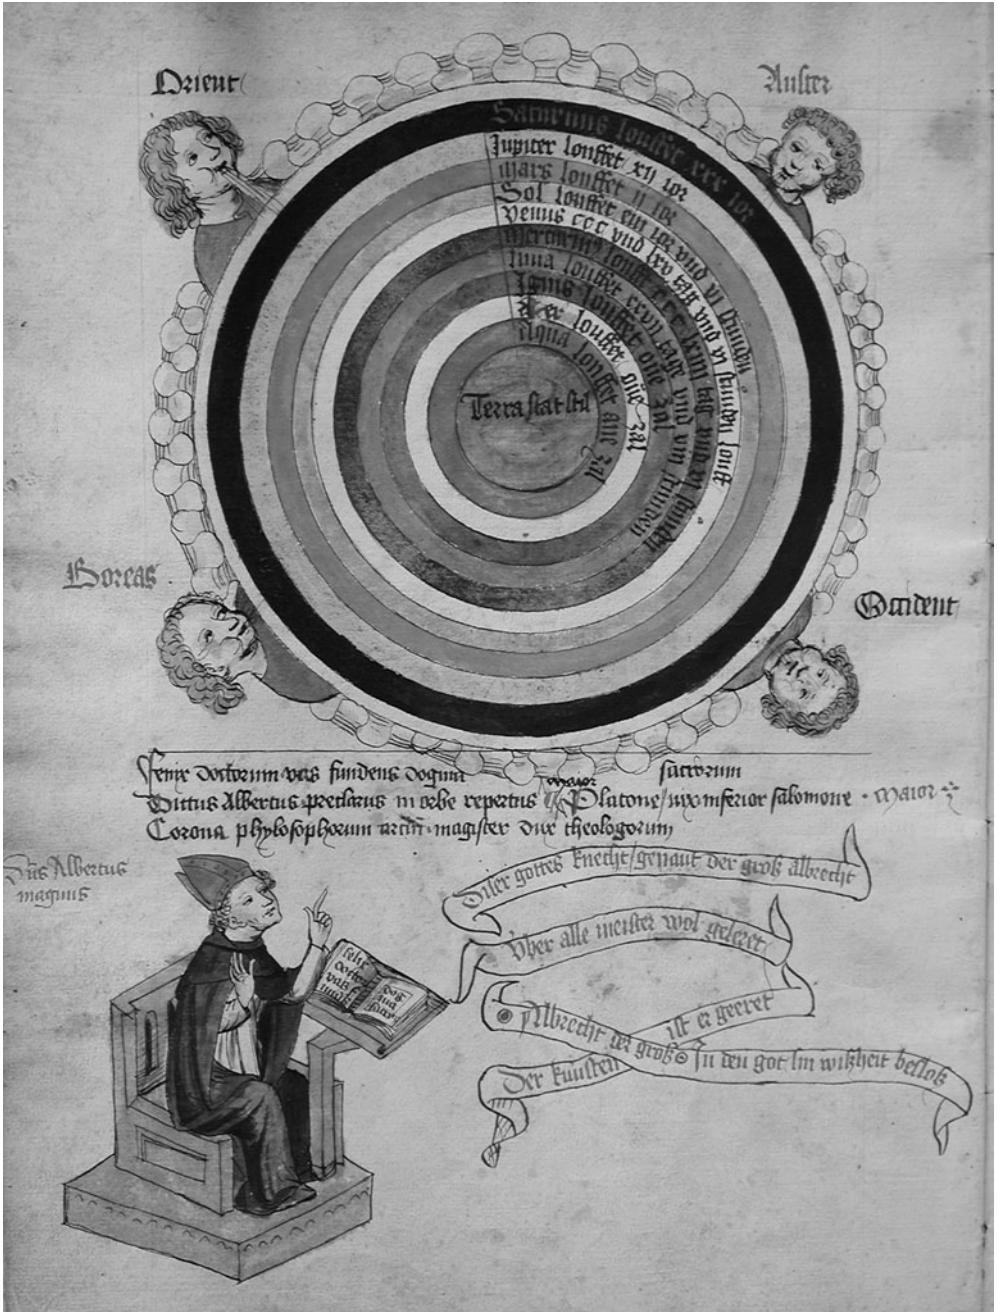 Orient
Auster
Saturnus louffet xxx ior
Jupiter louffet xij ior
Mars louffet ij ior
Sol louffet ein ior vnd vi stunden
Venus ccc vnd lxv tag vnd vi stunden loufft
Mercurius louffet ccc lxvi tag vnd vi stunden
luna louffet xxvii tage vnd viii stunden
Ignis louffet one zal
Aer louffet one zal
Aqua louffet ane zal
Terra stat stil
Boreas
Occident
fenix doctorum vas fundens dogma sacrorum
Dictus Albertus preclarus in orbe repertus maior Platone vix inferior salomone maior
Corona phylosophorum magister dux theologorum
Dns Albertus
magnus
Diser gottes knecht genant der groß albrecht
Vber alle meister wol geleret
Der kunsten ist er geeret
Albrecht der groß In den got sin wißheit besloß
felix
doctor
vas
dog
ma
sacr